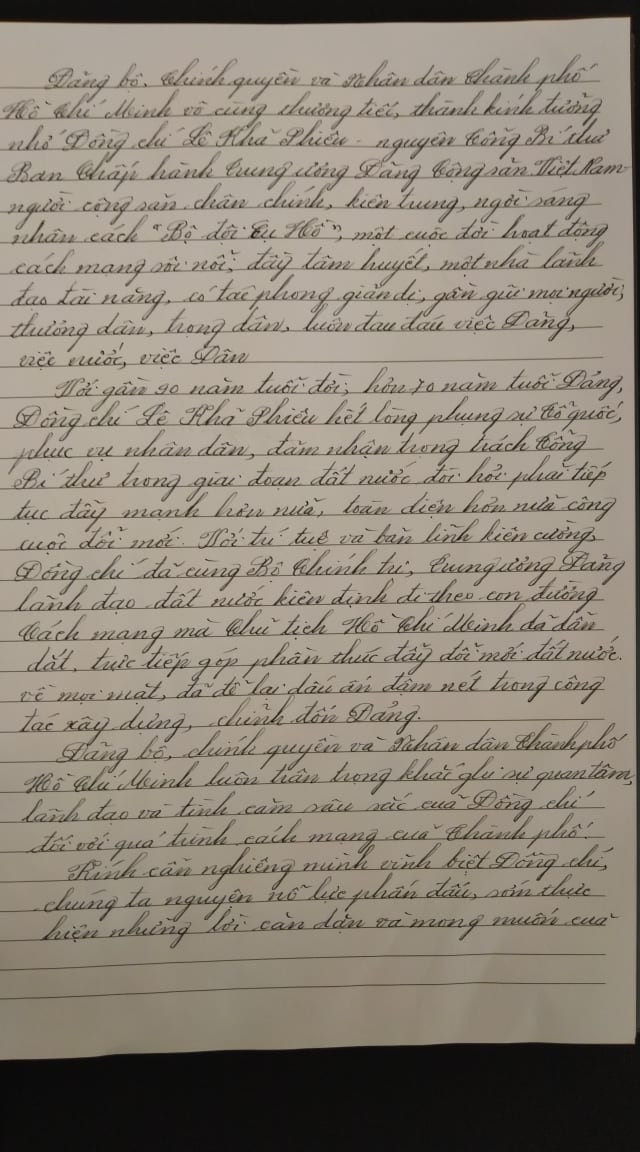 Đảng bộ, Chính quyền và Nhân dân Thành phố
Hồ Chí Minh vô cùng thương tiếc, thành kính tưởng
nhớ Đồng chí Lê Khả Phiêu - nguyên Tổng Bí thư
Ban Chấp hành Trung ương Đảng Cộng sản Việt Nam -
người cộng sản chân chính, kiên trung, ngời sáng
nhân cách "Bộ đội Cụ Hồ", một cuộc đời hoạt động
cách mạng sôi nổi, đầy tâm huyết, một nhà lãnh
đạo tài năng, có tác phong giản dị, gần gũi mọi người,
thương dân, trọng dân, luôn đau đáu việc Đảng,
việc nước, việc Dân
Với gần 90 năm tuổi đời, hơn 70 năm tuổi Đảng,
Đồng chí Lê Khả Phiêu hết lòng phụng sự Tổ quốc,
phục vụ nhân dân, đảm nhận trọng trách Tổng
Bí thư trong giai đoạn đất nước đòi hỏi phải tiếp
tục đẩy mạnh hơn nữa, toàn diện hơn nữa công
cuộc đổi mới. Với trí tuệ và bản lĩnh kiên cường,
Đồng chí đã cùng Bộ Chính trị, Trung ương Đảng
lãnh đạo đất nước kiên định đi theo con đường
Cách mạng mà Chủ tịch Hồ Chí Minh đã dẫn
dắt, trực tiếp góp phần thúc đẩy đổi mới đất nước
về mọi mặt, đã để lại dấu ấn đậm nét trong công
tác xây dựng, chỉnh đốn Đảng.
Đảng bộ, chính quyền và Nhân dân Thành phố
Hồ Chí Minh luôn trân trọng khắc ghi sự quan tâm,
lãnh đạo và tình cảm sâu sắc của Đồng chí
đối với quá trình cách mạng của Thành phố.
Kính cẩn nghiêng mình vĩnh biệt Đồng chí,
chúng ta nguyện nỗ lực phấn đấu, sớm thực
hiện những lời căn dặn và mong muốn của